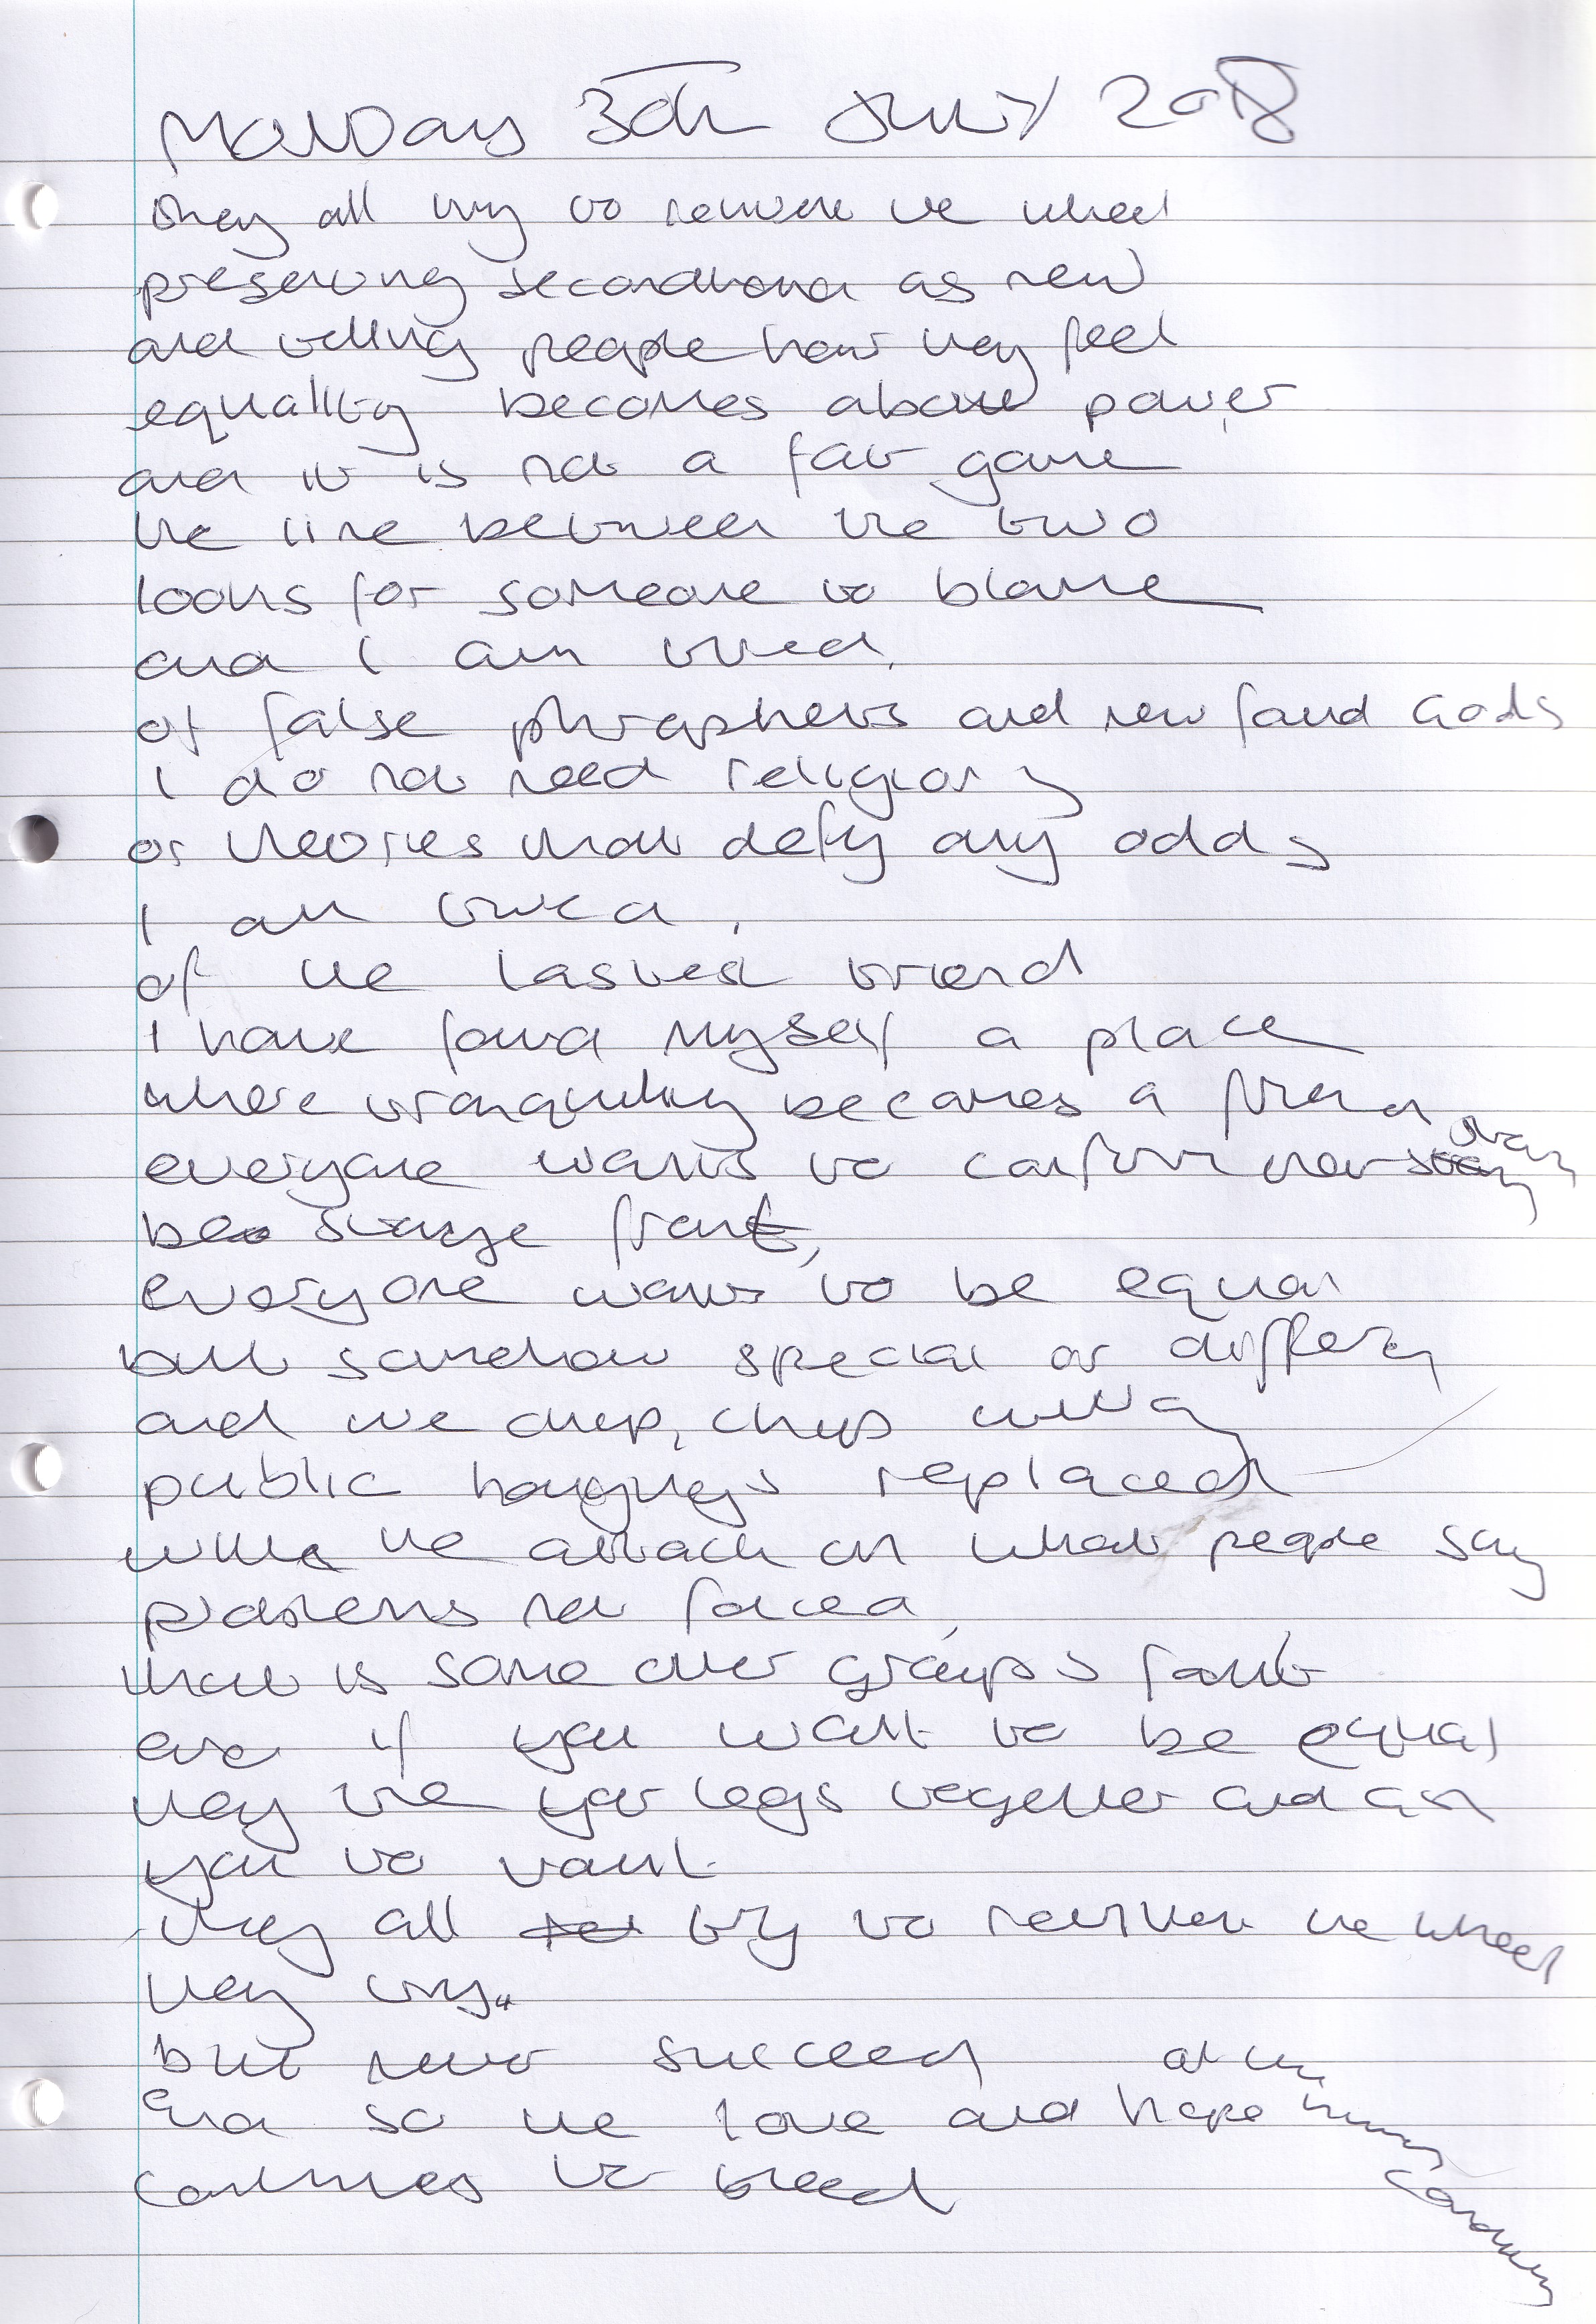 Monday 30th July 2018
they all try to reinvent the wheel
presenting secondhand as new
and telling people how they feel
equality becomes about power
and it is not a fair game
the line between the two
looks for someone to blame
and I am tired,
of false phrophets and new found Gods
I do not need religion,
or theories that defy any odds
I am tired,
of the lastest trend
I have found myself a place
where tranquility becomes a friend
everyone wants to confirm their story
be stage front,
everyone wants to be equal
but somehow special or differ
and we chip, chip away
public hangings replaced
with the attack on what people say
problems not faced,
that is some other groups fault
and if you want to be equal
they tie your legs together and ask
you to vault
they all try to reinvent the wheel
they try..
but never succeed
and so the love and hope
continues to bleed